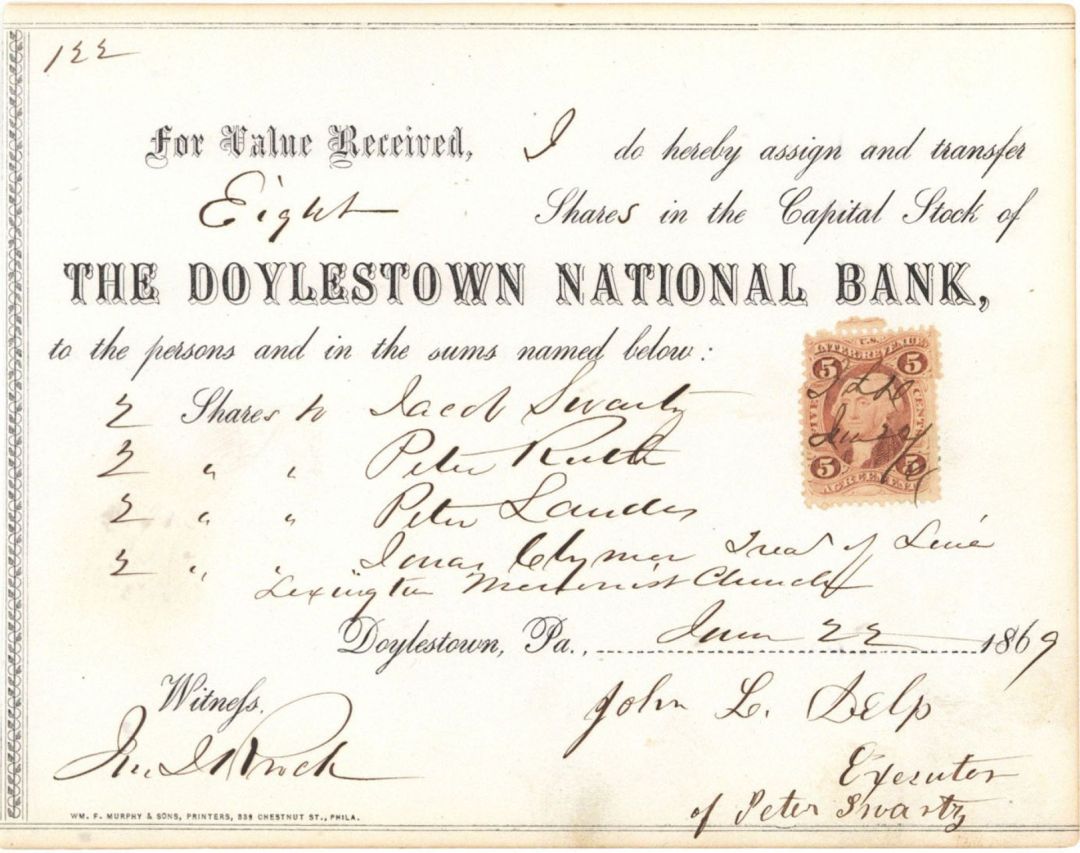 122
For Value Received, I do hereby assign and transfer
Eight Shares in the Capital Stock of
THE DOYLESTOWN NATIONAL BANK,
to the persons and in the sums named below:
2 Shares to Jacob Swartz
2 " " Peter Ruth
2 " " Peter Landes
2 " " Jonas Clymer Treas of Line
Lexington Mennonist Church
Doylestown, Pa., June 22 1869
Witness.
John L. Delp
Executor
of Peter Swartz
U.S. INTER. REVENUE
5 5
FIVE CENTS
J L D
June 22
/69
5 5
AGREEMENT
WM. F. MURPHY & SONS, PRINTERS, 339 CHESTNUT ST., PHILA.